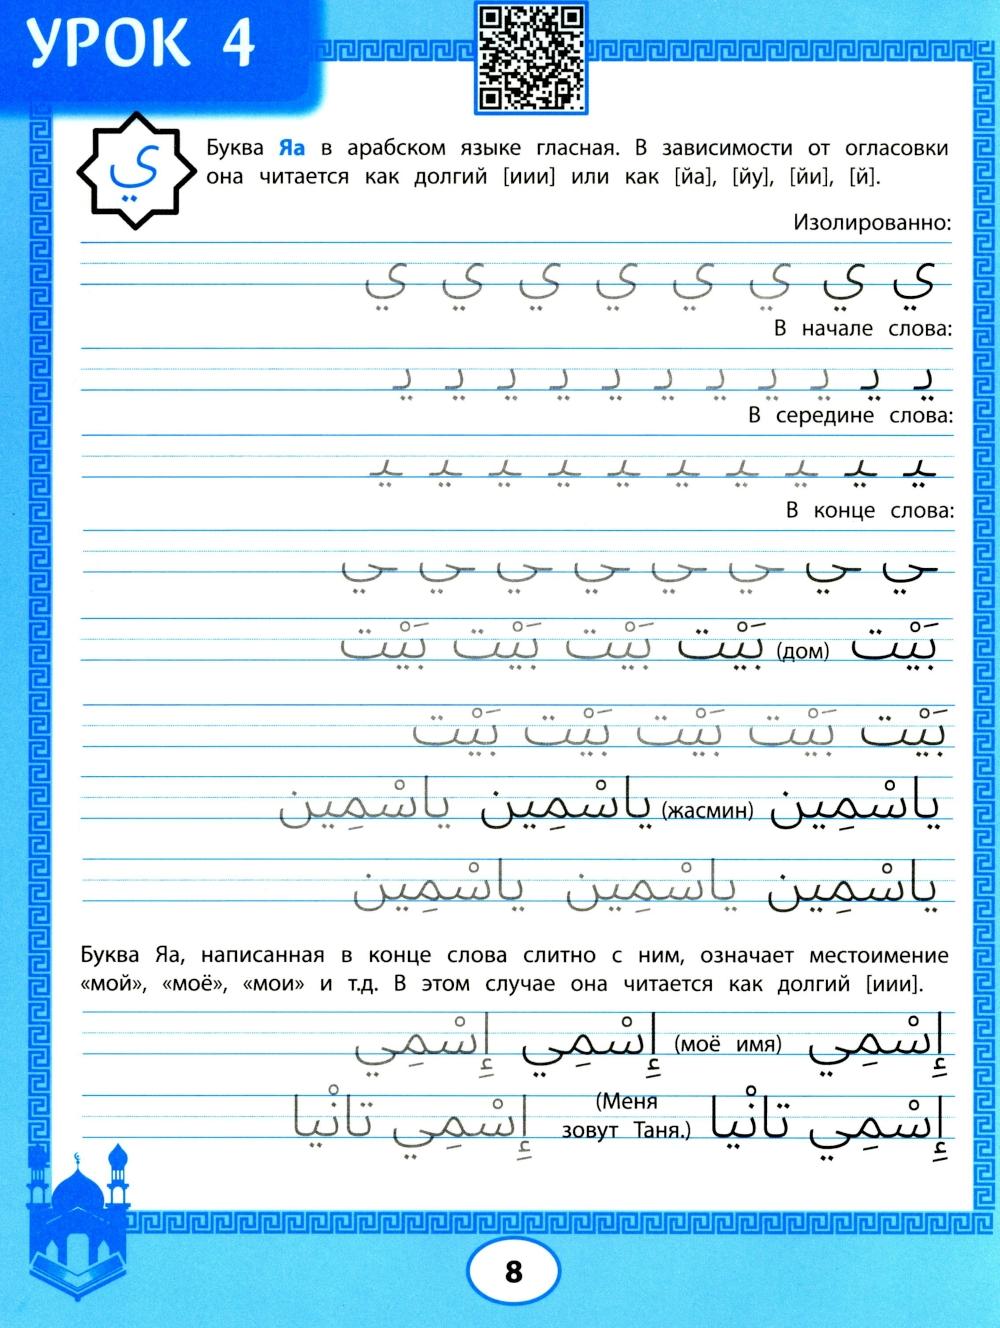 УРОК 4
ي
Буква Яа в арабском языке гласная. В зависимости от огласовки
она читается как долгий [иии] или как [йа], [йу], [йи], [й].
Изолированно:
ي ي ي ي ي ي ي ي
В начале слова:
يـ يـ يـ يـ يـ يـ يـ يـ يـ يـ يـ
В середине слова:
ـيـ ـيـ ـيـ ـيـ ـيـ ـيـ ـيـ ـيـ ـيـ ـيـ
В конце слова:
ـي ـي ـي ـي ـي ـي ـي ـي
بَيْت (дом) بَيْت بَيْت بَيْت بَيْت
بَيْت بَيْت بَيْت بَيْت بَيْت
ياسْمِين (жасмин) ياسْمِين ياسْمِين
ياسْمِين ياسْمِين ياسْمِين
Буква Яа, написанная в конце слова слитно с ним, означает местоимение
«мой», «моё», «мои» и т.д. В этом случае она читается как долгий [иии].
إِسْمِي (моё имя) إِسْمِي إِسْمِي
إِسْمِي تانْيا (Меня зовут Таня.) إِسْمِي تانْيا
8